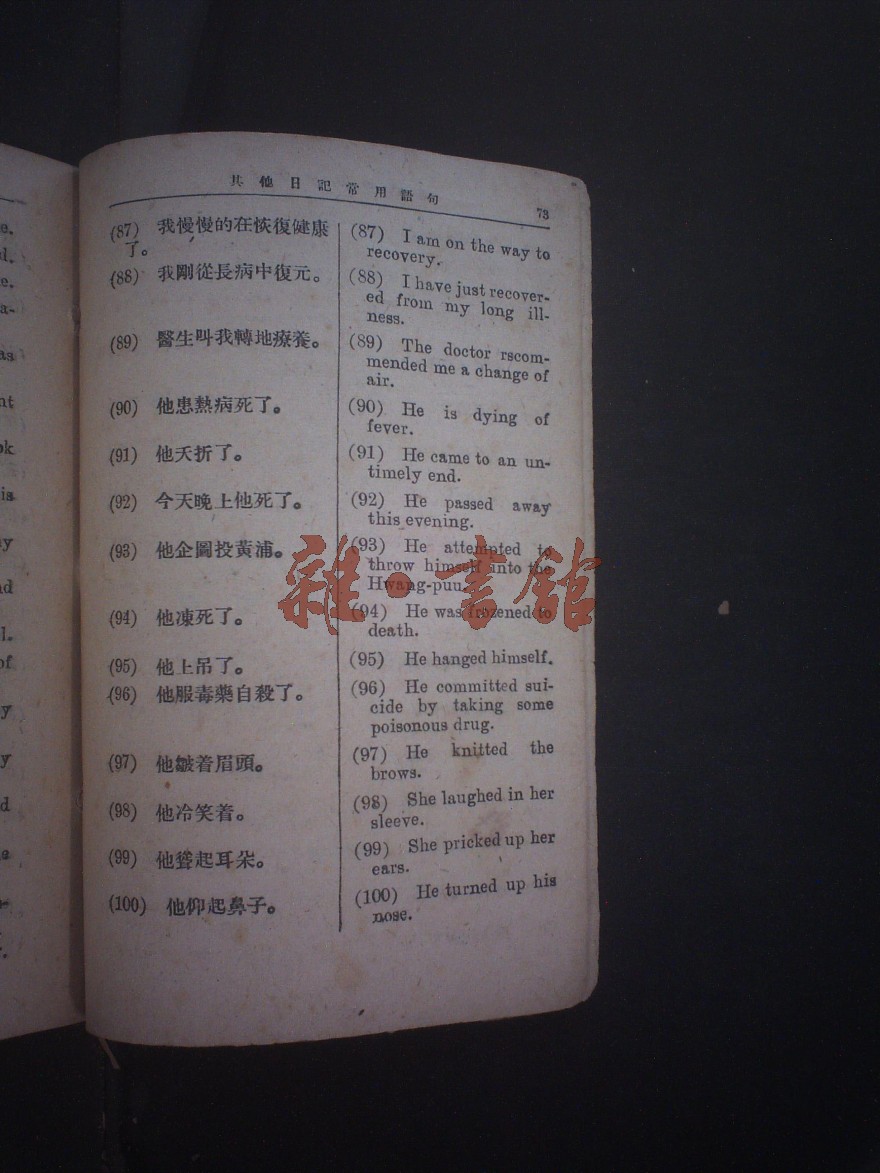 其他日記常用語句 73
(87) 我慢慢的在恢復健康
了。
(88) 我剛從長病中復元。
(89) 醫生叫我轉地療養。
(90) 他患熱病死了。
(91) 他夭折了。
(92) 今天晚上他死了。
(93) 他企圖投黃浦。
(94) 他凍死了。
(95) 他上吊了。
(96) 他服毒藥自殺了。
(97) 他皺着眉頭。
(98) 他冷笑着。
(99) 他聳起耳朵。
(100) 他仰起鼻子。
(87) I am on the way to
recovery.
(88) I have just recover-
ed from my long ill-
ness.
(89) The doctor rscom-
mended me a change of
air.
(90) He is dying of
fever.
(91) He came to an un-
timely end.
(92) He passed away
this evening.
(93) He attempted to
throw himself into the
Hwang-puu.
(94) He was frozened to
death.
(95) He hanged himself.
(96) He committed sui-
cide by taking some
poisonous drug.
(97) He knitted the
brows.
(98) She laughed in her
sleeve.
(99) She pricked up her
ears.
(100) He turned up his
nose.
雜·書館